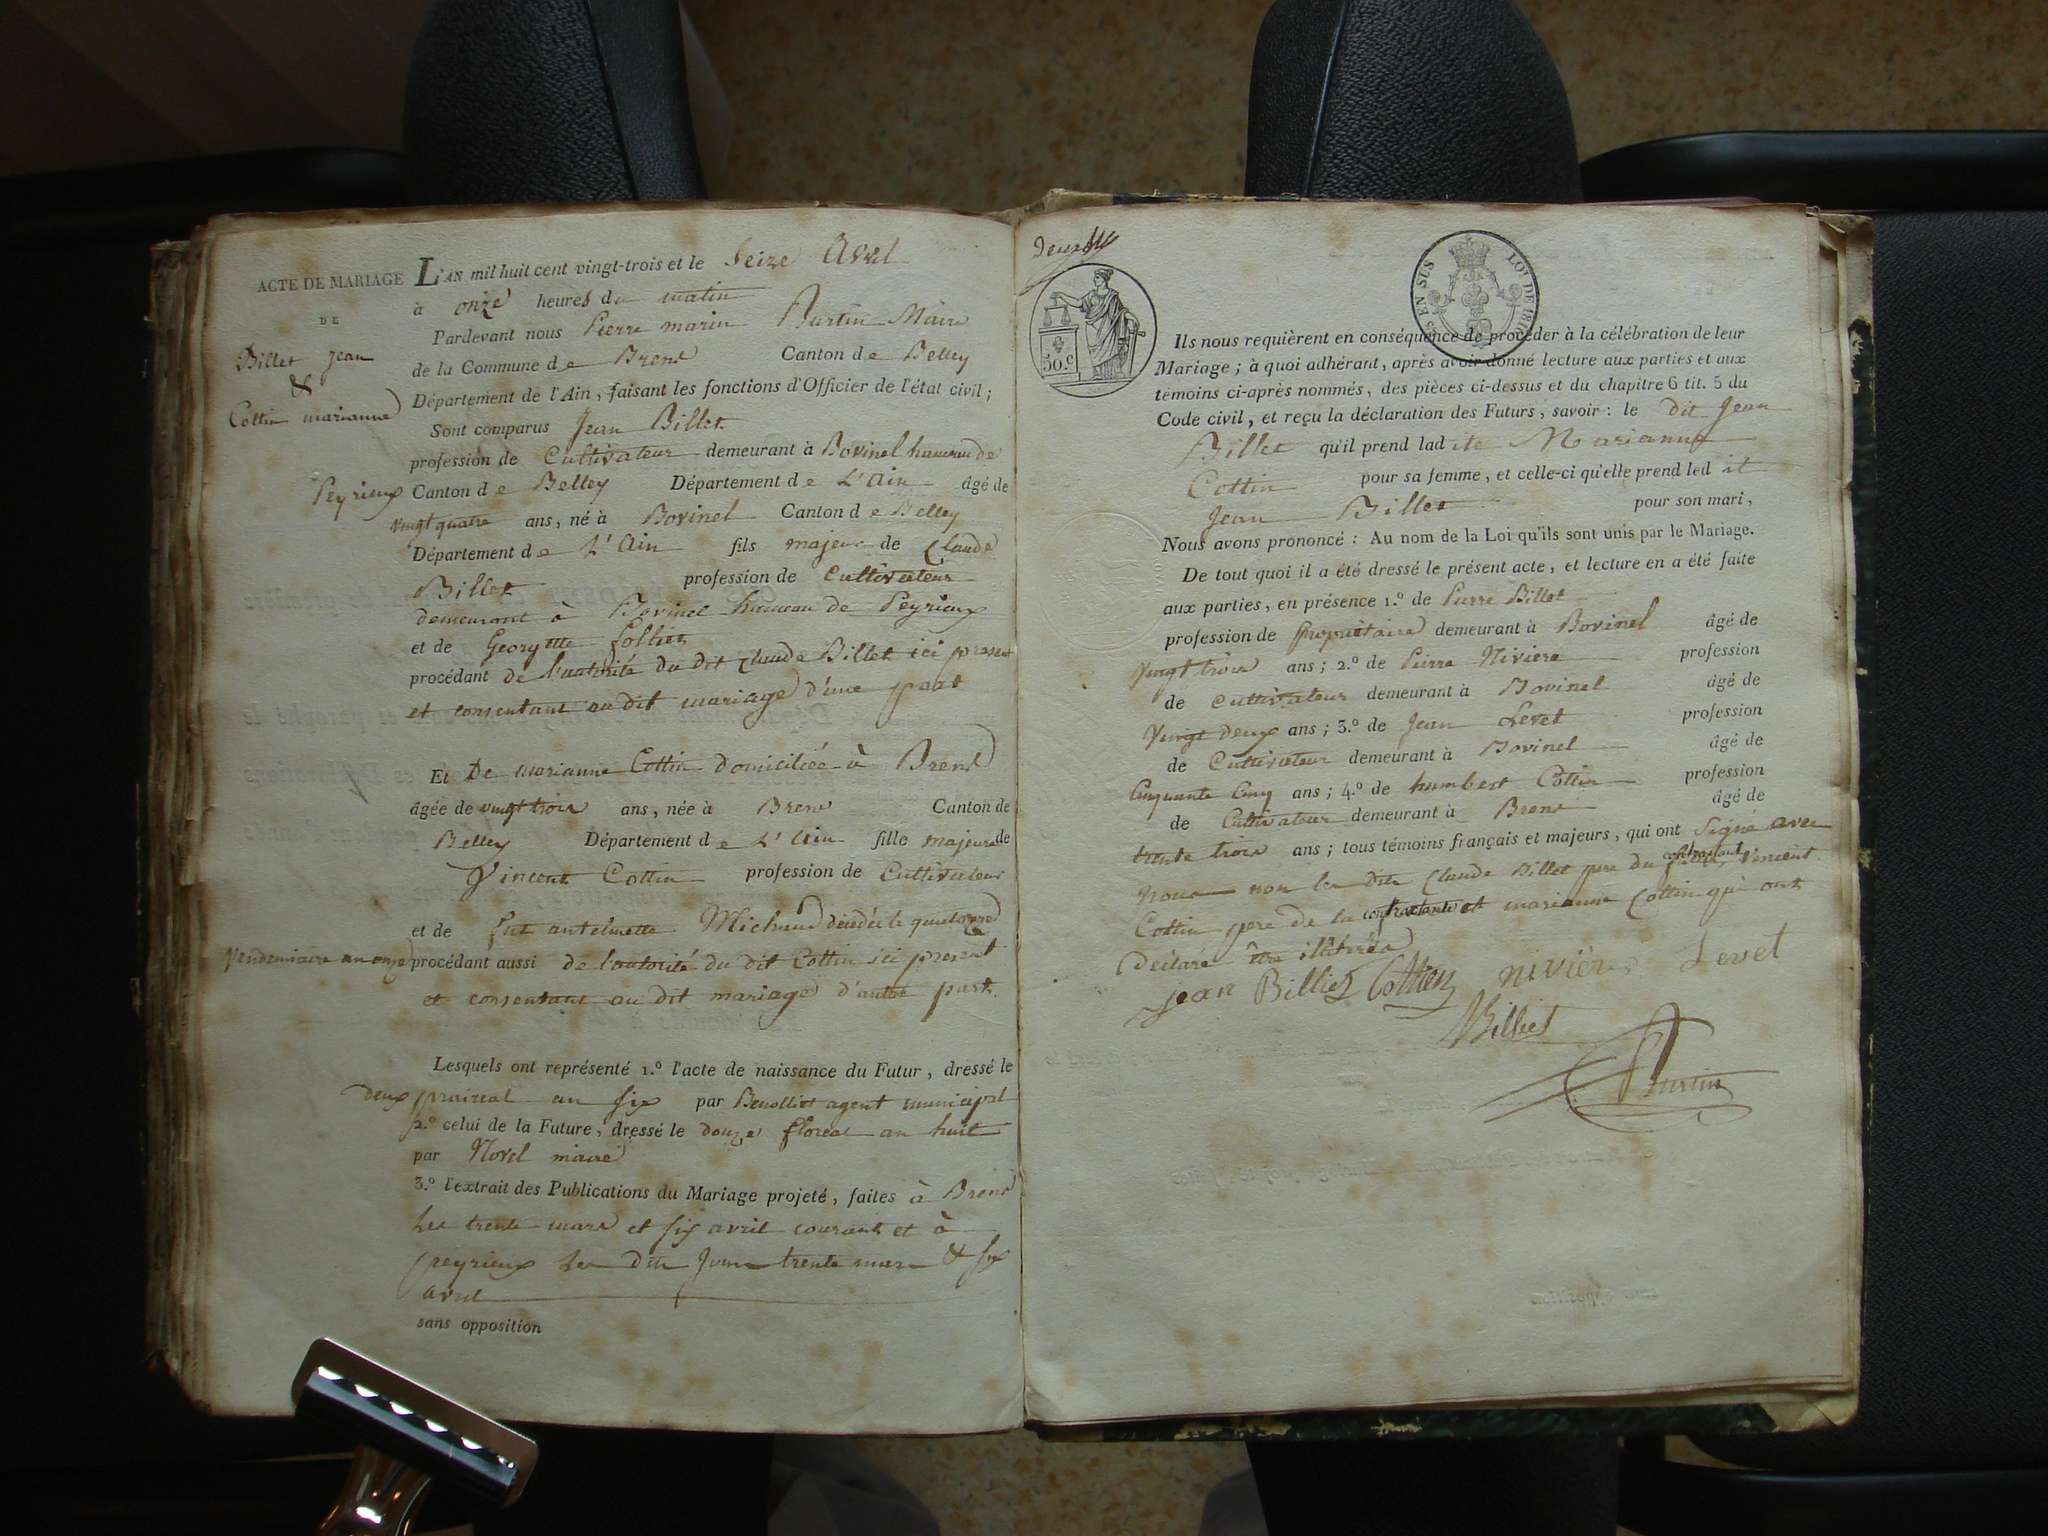 ACTE DE MARIAGE
DE
Billet Jean
&
Cottin marianne
L'AN mil huit cent vingt-trois et le Seize Avril
à onze heures du matin
Pardevant nous Pierre marin Burtin Maire
de la Commune de Brens Canton de Belley
Département de l'Ain, faisant les fonctions d'Officier de l'état civil;
Sont comparus Jean Billet
profession de Cultivateur demeurant à Bovinel hameau de
Peyrieux Canton de Belley Département de L'Ain âgé de
vingt quatre ans, né à Bovinel Canton de Belley
Département de L'Ain fils majeur de Claude
Billet profession de Cultivateur
demeurant à Bovinel hameau de Peyrieux
et de Georgette
procédant de l'autorité du dit Claude Billet ici présent
et consentant au dit mariage d'une part
Et De marianne Cottin domiciliée à Brens
âgée de vingt trois ans, née à Brens Canton de
Belley Département de L'Ain fille majeure de
Vincent Cottin profession de Cultivateur
et de fut antelmette Michaud décédée le quatorze
Vendemiaire an onze procédant aussi de l'autorité du dit Cottin ici present
et consentant au dit mariage d'autre part.
Lesquels ont représenté 1.º l'acte de naissance du Futur, dressé le
deux prairial an six par Benolliet agent municipal
2.º celui de la Future, dressé le douze floreal an huit
par Novel maire
3.º l'extrait des Publications du Mariage projeté, faites à Brens
les trente mars et six avril courant et à
peyrieux les dits Jours trente mars & six
avril
sans opposition
50.c
EN SUS LOI DE 1816
Ils nous requièrent en conséquence de procéder à la célébration de leur
Mariage; à quoi adhérant, après avoir donné lecture aux parties et aux
témoins ci-après nommés, des pièces ci-dessus et du chapitre 6 tit. 5 du
Code civil, et reçu la déclaration des Futurs, savoir: le dit Jean
Billet qu'il prend ladite Marianne
Cottin pour sa femme, et celle-ci qu'elle prend ledit
Jean Billet pour son mari,
Nous avons prononcé: Au nom de la Loi qu'ils sont unis par le Mariage.
De tout quoi il a été dressé le présent acte, et lecture en a été faite
aux parties, en présence 1.º de Pierre Billet
profession de propriétaire demeurant à Bovinel âgé de
vingt trois ans; 2.º de Pierre Niviere profession
de Cultivateur demeurant à Bovinel âgé de
vingt deux ans; 3.º de Jean Levet profession
de Cultivateur demeurant à Bovinel âgé de
Cinquante Cinq ans; 4.º de humbert Cottin profession
de Cultivateur demeurant à Brens âgé de
trente trois ans; tous témoins français et majeurs, qui ont signé avec
nous non les dits Claude Billet pere du contractant, Vincent
Cottin pere de la contractante et marianne Cottin qui ont
déclaré être illitérés
jean Billiet Cotten nivière Levet
Billiet
Burtin